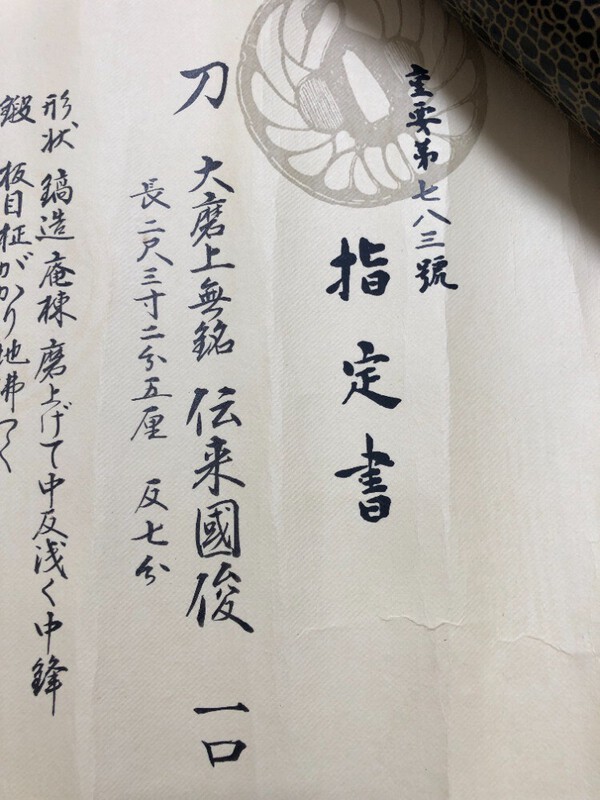 重要第七八三號
指定書
刀 大磨上無銘 伝来國俊 一口
長二尺三寸二分五厘 反七分
形状 鎬造 庵棟 磨上げて中反浅く中鋒
鍛 板目柾がかり地沸つく